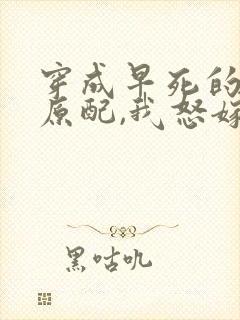 穿成早死的
原配,我怒嫁
黑咕叽